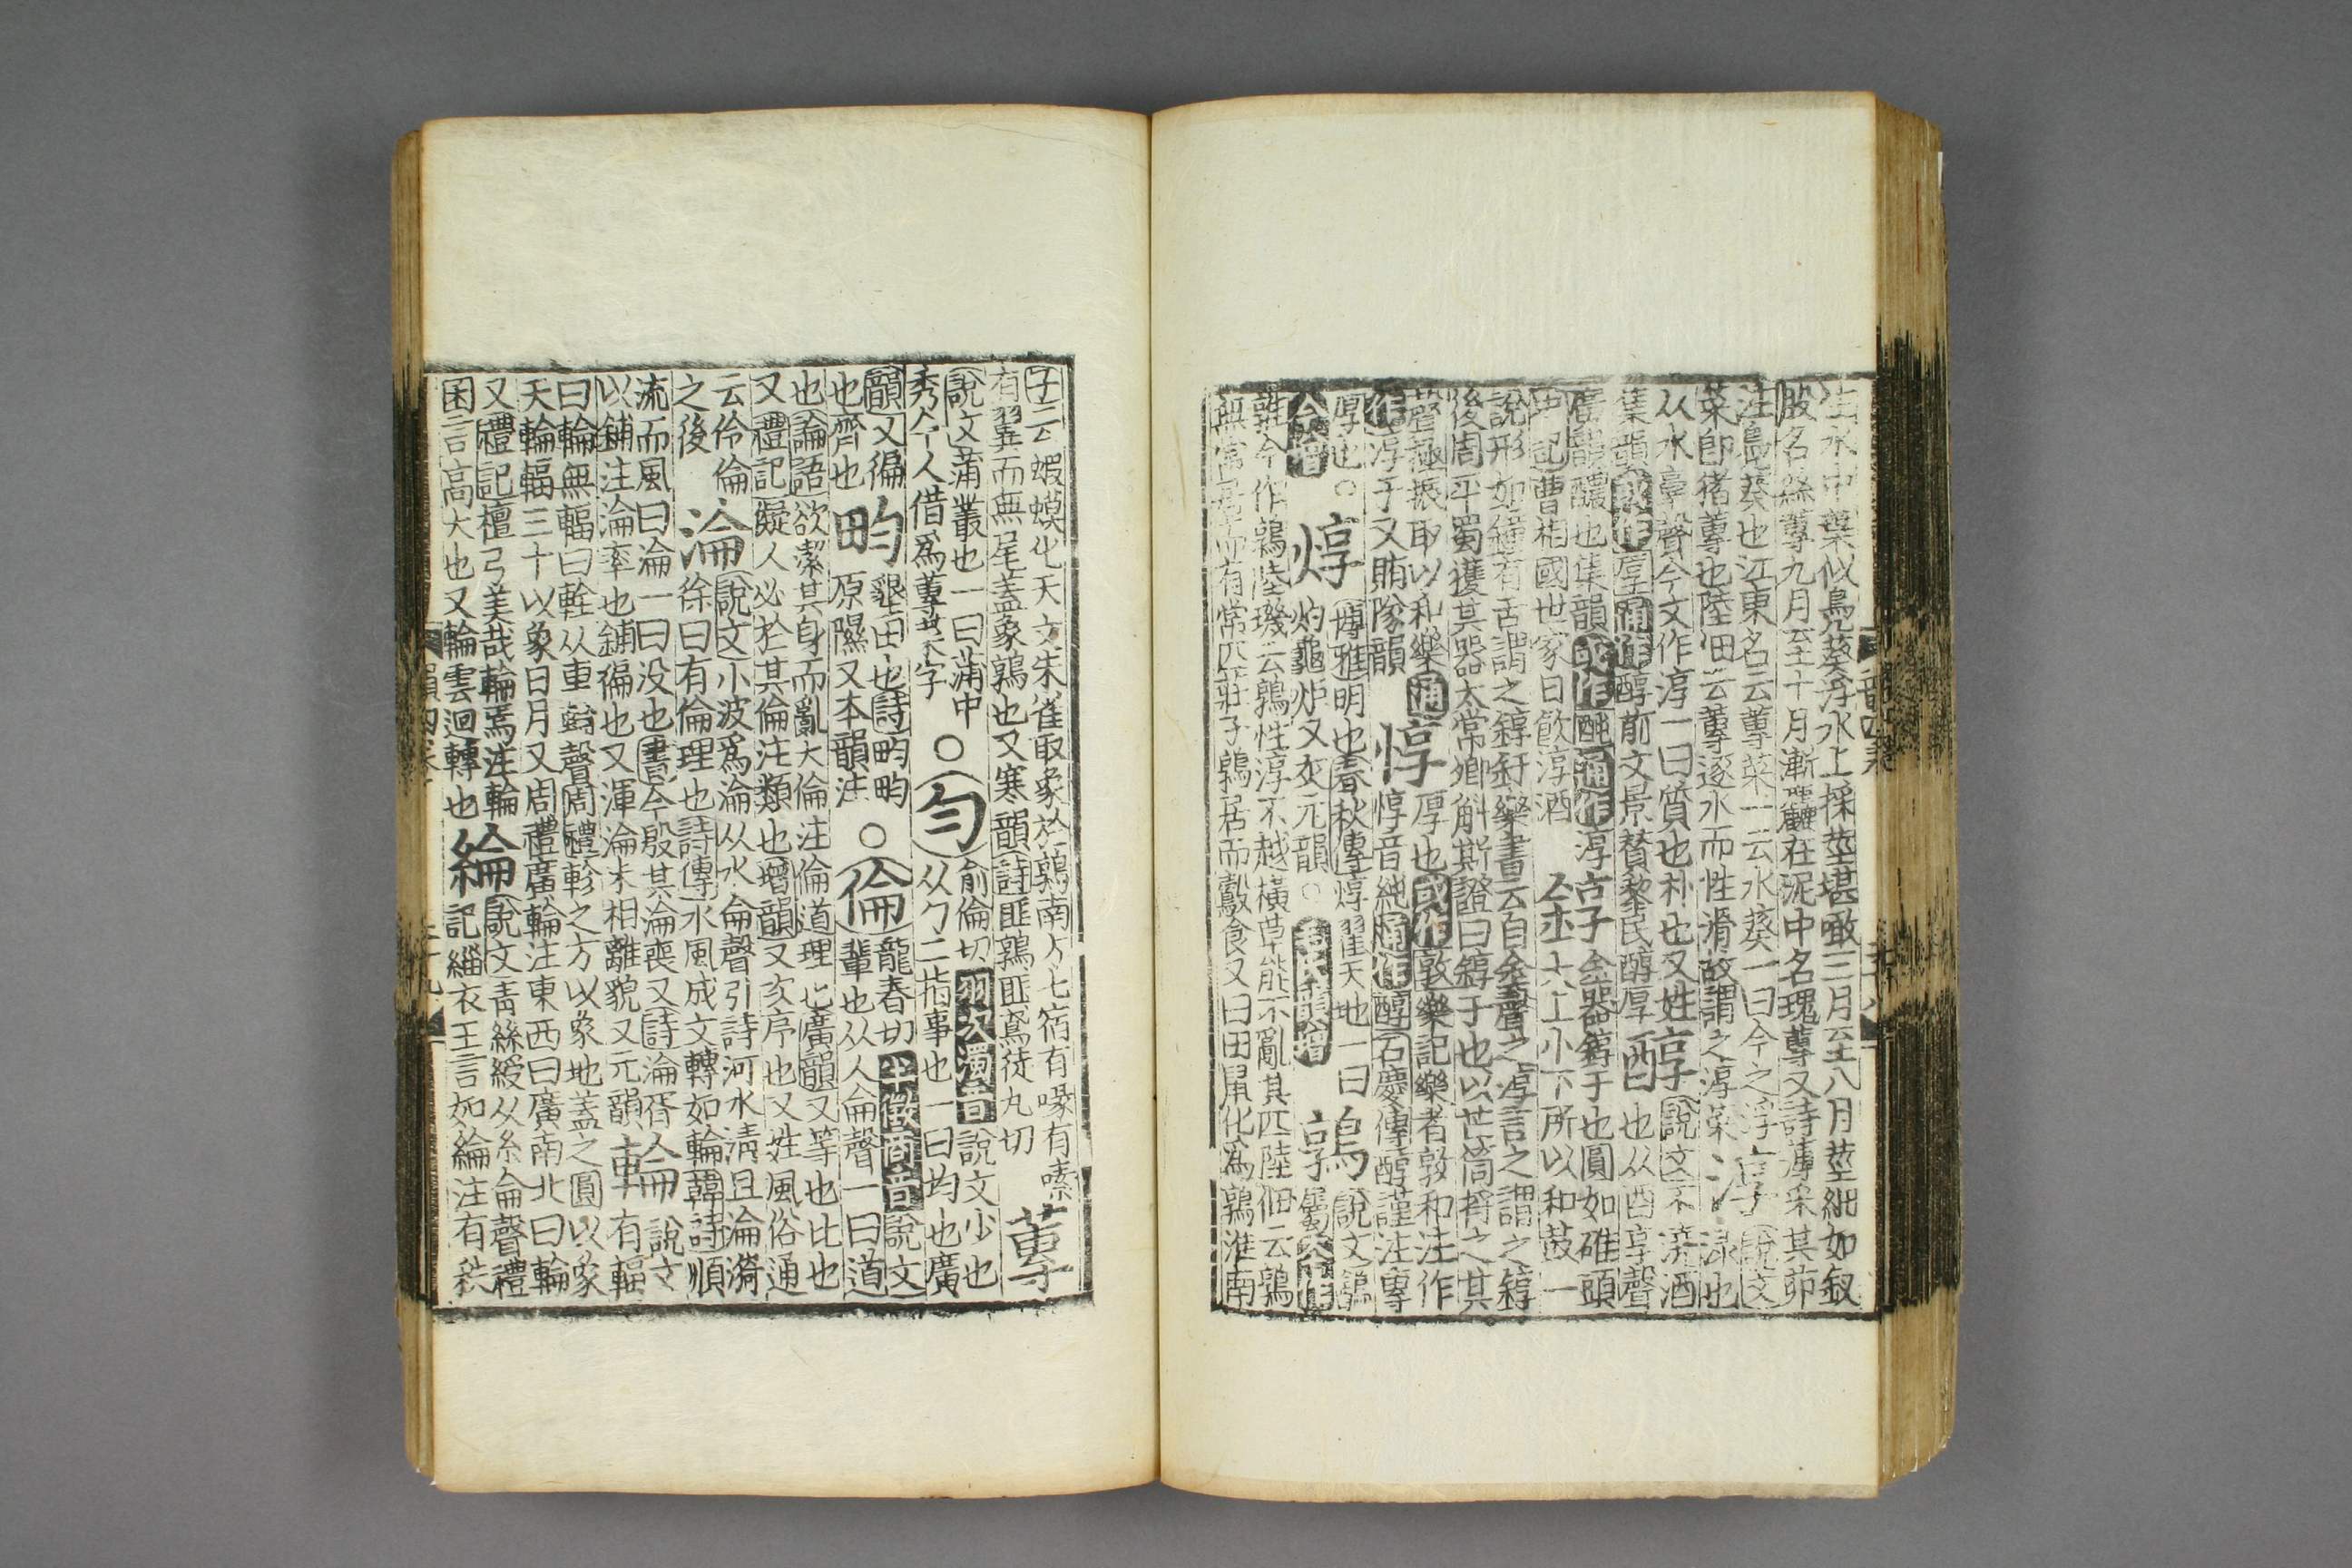 生水中葉似鳬葵浮水上採莖堪噉三月至八月莖細如釵
股名絲蓴九月至十月漸麤在泥中名瑰蓴又詩薄采其茆
注鳬葵也江東名云蓴菜一云水葵一曰今之浮 淳 說文
菜即猪蓴也陸佃云蓴逐水而性滑故謂之淳菜 淥也
从水𦎫聲今文作淳一曰質也朴也又姓 醇 說文不澆酒
集韻或作𨣓通作醇前文景贊黎民醇厚 也从酉享聲
廣韻醲也集韻或作 通作淳 錞 金器錞于也圓如碓頭
史記曹相國世家日飲淳酒 大上小下所以和鼓一
說形如鐘有舌謂之錞釪樂書云自金聲之淳言之謂之錞
後周平蜀獲其器太常卿斛斯證曰錞于也以芒筒捋之其
聲極振取以和樂通 惇 厚也或作敦樂記樂者敦和注作
作淳于又賄隊韻 惇音純通作醇石慶傳醇謹注專
厚也○ 焞 博雅明也春秋傳焞燿天地一曰 鶉 說文
今增 灼龜炉又灰元韻○ 韻增 鶉屬
雜今作鶉陸璣云鶉性淳不越橫草能不亂其匹陸佃云鶉
無常居而有常匹莊子鶉居而鷇食又曰田鼠化為鶉淮南
子云蝦蟆化天文朱雀取象於鶉南方七宿有喙有嗉
有翼而無尾蓋象鶉也又寒韻詩匪鶉匪鳶徒丸切 蓴
說文蒲叢也一曰蒲中 ○勻 俞倫切羽次濁音說文少也
秀今人借爲蓴菜字 从勹二指事也一曰均也廣
韻又徧 畇 墾田也詩畇畇 ○倫 龍春切半徵商音說文
也齊也 原隰又本韻注 輩也从人侖聲一曰道
也論語欲潔其身而亂大倫注倫道理也廣韻又等也比也
又禮記儗人必於其倫注類也增韻又次序也又姓風俗通
云伶倫 淪 說文小波爲淪从水侖聲引詩河水清且淪漪
之後 徐曰有倫理也詩傳水風成文轉如輪韓詩順
流而風曰淪一曰没也書今殷其淪喪又詩淪胥 輪 說文
以鋪注淪率也鋪徧也又渾淪未相離貌又元韻 有輻
曰輪無輻曰輇从車侖聲周禮軫之方以象地蓋之圓以象
天輪輻三十以象日月又周禮廣輪注東西曰廣南北曰輪
又禮記檀弓美哉輪焉注輪 綸 說文青絲綬从糸侖聲禮
囷言高大也又輪雲迴轉也 記緇衣王言如綸注有秩